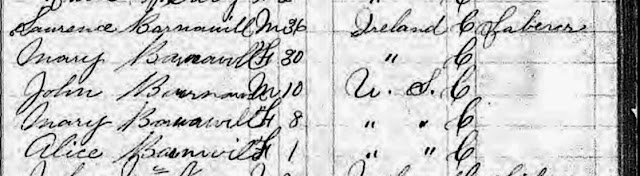 Laurence Barnawill M 36 Ireland C Laborer
Mary Barnawill F 30 " C
John Barnawill M 10 U. S. C
Mary Barnawill F 8 " " C
Alice Barnwill F 1 " " C